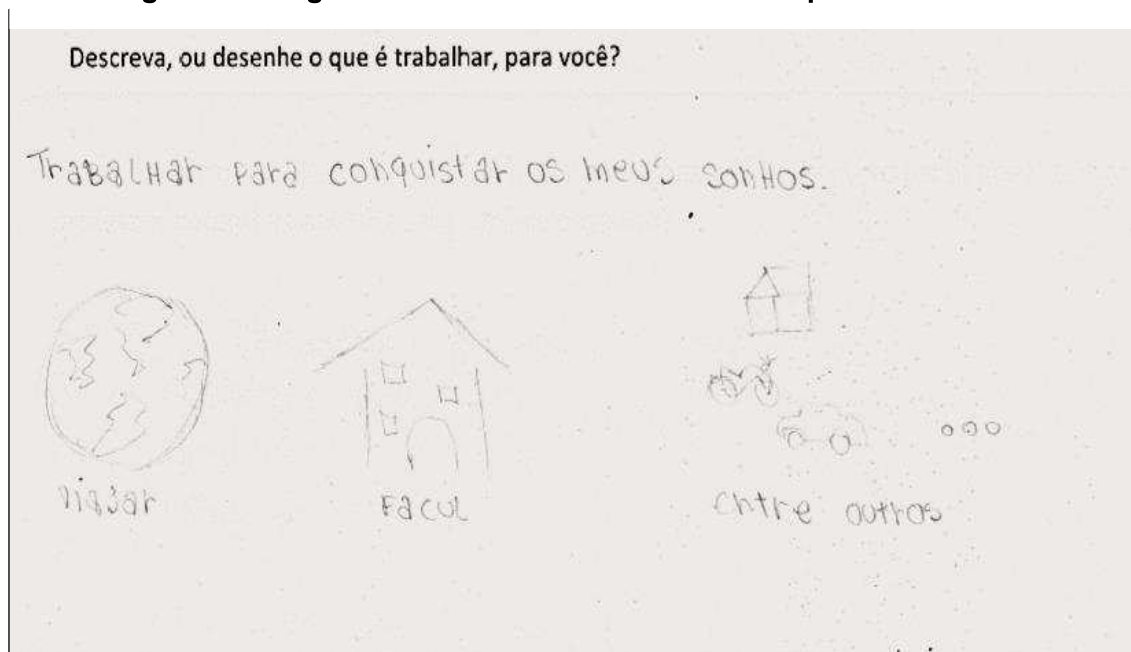 Descreva, ou desenhe o que é trabalhar, para você?
Trabalhar para conquistar os meus sonhos.
viajar
Facul
Entre outros